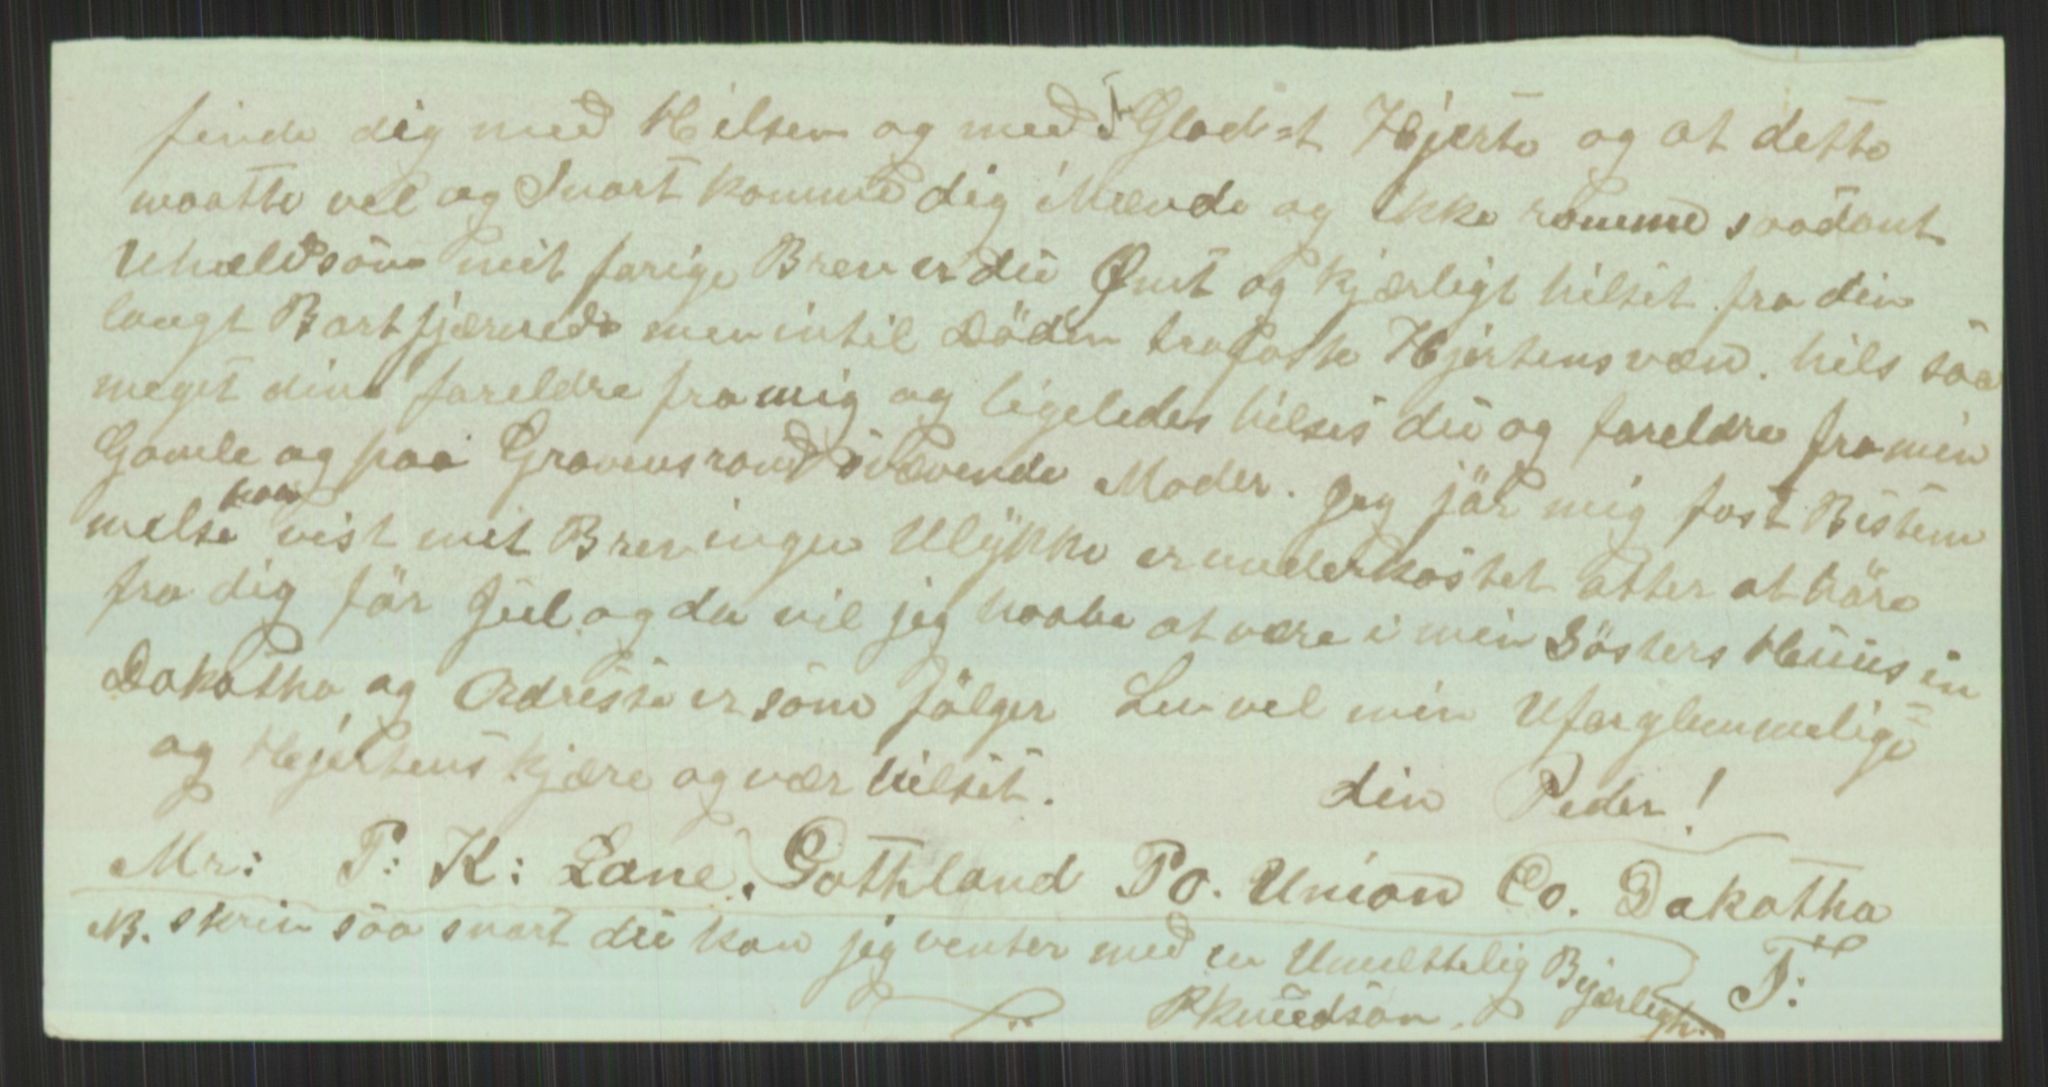 finde dig med Hilsen og med Glad=t Hjerte og at dette
maatte vel og Snart komme dig ihænde og ikke komme saadant
Uheld som mit forige Brev er du Ømt og kjærligt hilset fra din
langt Bort fjærnede men intil Döden trofaste Hjertens væn. hils saa
meget dine foreldre fra mig og ligeledes hilses du og foreldre fra min
Gamle og paa Gravensrand svævende Moder. Jeg jör mig fast Bistem
melse paa vist mit Brev ingen Ulykke er underkastet atter at höre
fra dig för Juel og da vil jeg haabe at være i min Sösters Huus in
Dakotha og Adresse er som fölger Lev vel min Uforglemmelige
og Hjertens kjære og vær hilset. din Peder!
Mr: P: K: Lane. Gothland Po. Union Co. Dakotha
NB. skriv saa snart du kan jeg venter med en Umettelig Bejærligh. T:
PKnudson.